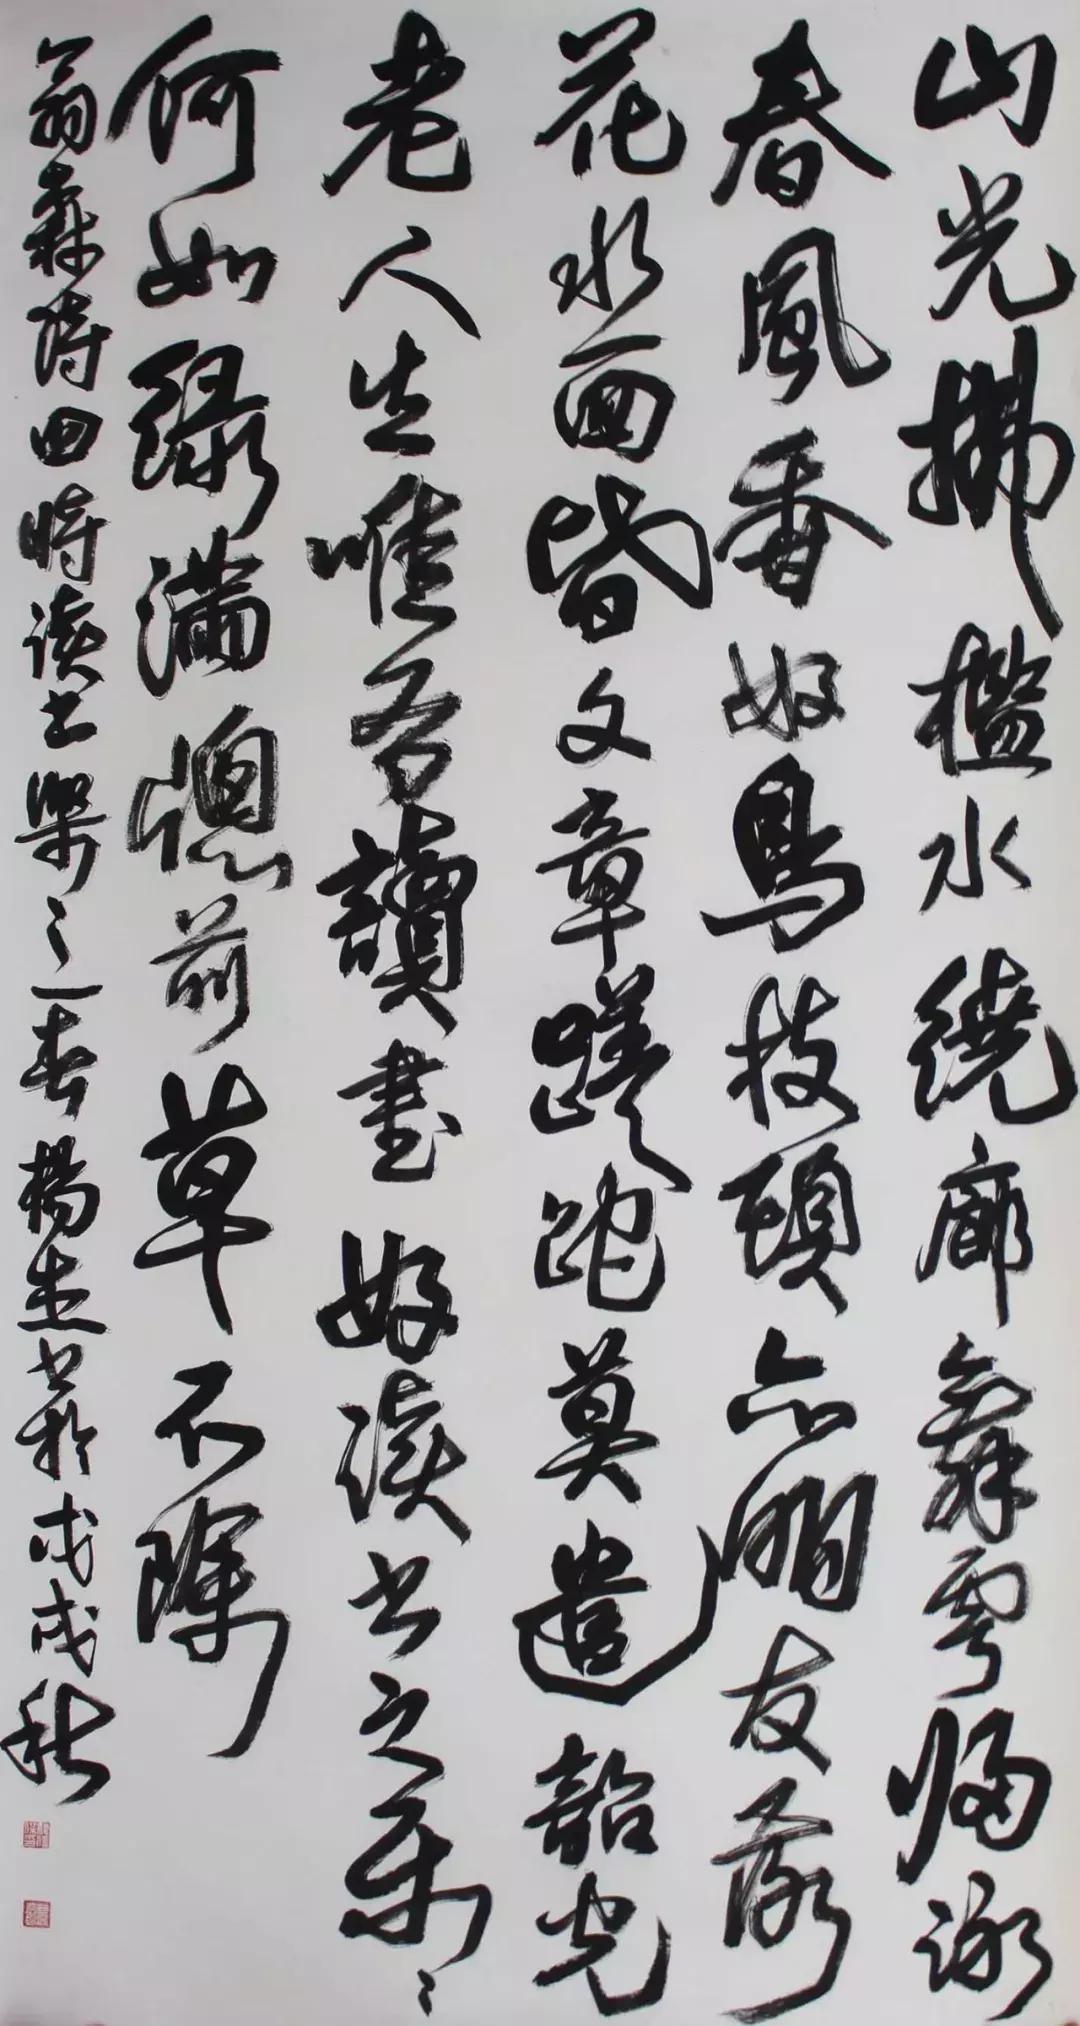 山光拂檻水繞廊舞雩歸詠
春風香好鳥枝頭亦朋友落
花水面皆文章蹉跎莫遣韶光
老人生唯有讀書好读书之樂〻
何如綠滿窻前草不除
翁森詩四時读书樂之一春 楊志书於戊戌秋